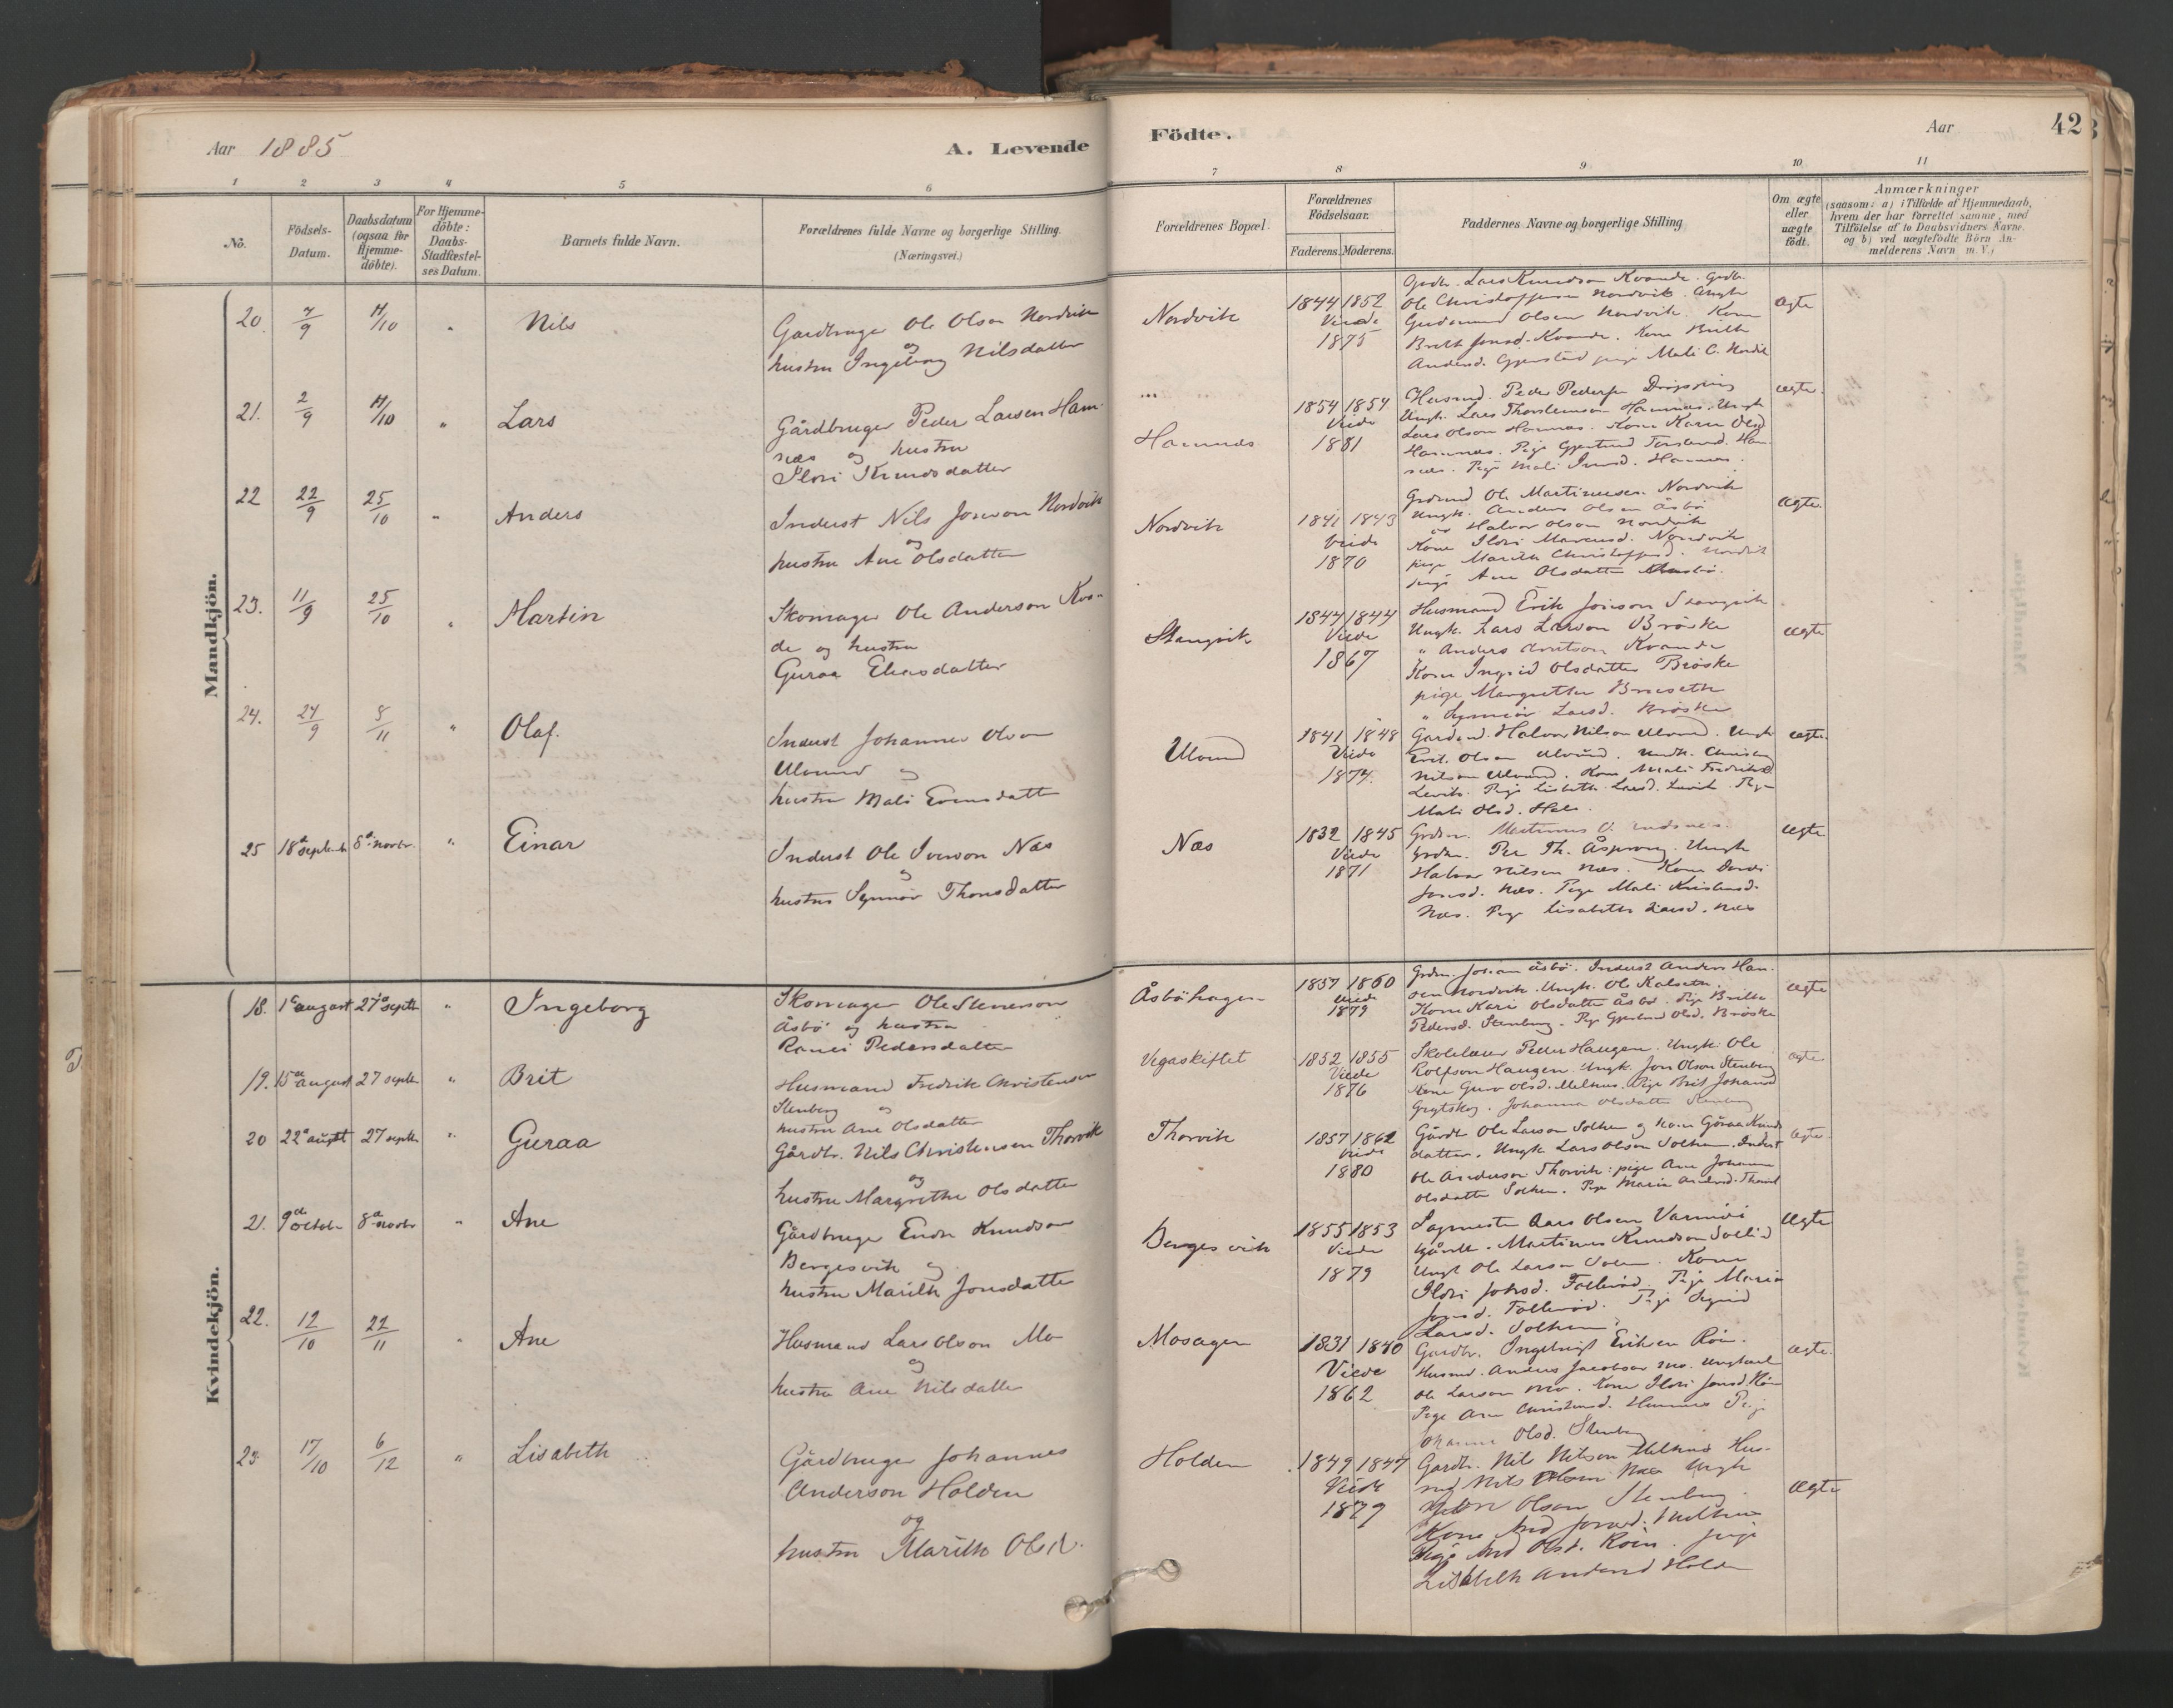 Aar 1885
A. Levende
1 2 3 4 5 6
No.
Födsels-
Datum.
Daabsdatum
(ogsaa for
Hjemme-
döbte).
For Hjemme-
döbte:
Daabs-
Stadfæstel-
ses Datum.
Barnets fulde Navn.
Forældrenes fulde Navne og borgerlige Stilling.
(Næringsvei.)
Mandkjön.
20. 7/9 11/10 " Nils
Gaardbruger Ole Olson Nordvik
og
hustru Ingeborg Nilsdatter
21. 2/9 11/10 " Lars
Gårdbruger Peder Larsen Ham-
næs og hustru
Ildri Knudsdatter
22 22/9 25/10 " Anders
Inderst Nils Jonson Nordvik
og
hustru Ane Olsdatter
23. 11/9 25/10 " Martin
Skomager Ole Anderson Kvan-
de og hustru
Guraa Eliasdatter
24. 24/9 8/11 " Olaf.
Inderst Johannes Olson
Ulvund og
hustru Mali Evensdatter
25 18de septemb 8de novbr. " Einar
Inderst Ole Iverson Næs
og
hustru Synnöv Thoresdatter
Kvindekjön.
18. 1e august 27de septb " Ingeborg
Skomager Ole Stenerson
Åsbö og hustru
Ranei Pedersdatter
19. 15de august 27 septb " Brit
Husmand Fredrik Christensen
Stenberg og
hustru Ane Olsdatter
20 22de augst 27 septb " Guraa
Gårdbr. Nils Christensen Thorvik
og
hustru Margrethe Olsdatter
21. 9de octob. 8de novbr " Ane
Gårdbruger Endre Knudson
Bergesvik og
hustru Marith Jonsdatter
22. 12/10 22/11 " Ane
Husmand Lars Olson Mo
og
hustru Ane Nilsdatter
23 17/10 6/12 " Lisabeth
Gårdbruger Johannes
Anderson Holden
og
hustru Marith Olsd.
Födte.
Aar
42
7 8 9 10 11
Forældrenes Bopæl.
Forældrenes
Födselsaar.
Faderens. Moderens.
Faddernes Navne og borgerlige Stilling
Om ægte
eller
uægte
födt.
Anmærkninger
(saasom: a) i Tilfælde af Hjemmedaab,
hvem der har forrettet samme, med
Tilföielse af to Daabsvidners Navne.
og b) ved uægtefödte Börn An-
melderens Navn m. V.)
Nordvik
1844 1852
Viede
1875
Grdb. Lars Knudson Kvande. Grdb.
Ole Christoffersen Nordvik. Ungk
Gudmund Olsen Nordvik. Kone
Brit Jonsd. Kvande. Kone Brith
Andersd. Gjerstad pige Mali C. Nordvik
ægte
Hamnæs
1854 1854
Viede
1881
Husmd. Peder Pedersen
Ungk. Lars Thorstenson Hamnæs. Ungk
Lars Olson Hamnæs. Kone Karen Olsd
Hamnæs. Pige Gjertrud Torstensd. Ham-
næs. Pige Mali Hamnæs.
ægte.
Nordvik
1841 1843
Viede
1870
Grdmd Ole Martinusen Nordvik
Ungk. Anders Olsen Åsbö
Halvor Olson Nordvik
Kone Ildri Nordvik
pige Marith Christoffersd. Nordvik
pige Ane Olsdatter
ægte.
Stangvik
1844 1844
Viede
1867
Husmand Erik Jonson Stangvik
Ungk. Lars Larson Bröske
" Anders Kvande
Kone Ingrid Olsdatter Bröske
pige Margrethe
" Synnöv Larsd. Bröske
ægte
Ulvund
1841 1848
Viede
1874.
Gardmd. Halvor Nilson Ulvund. Ungk
Erik Olson Ulvund.
Nilson Ulvund. Kone Mali Fredriksd
Pige Lisbeth Larsd. Pige
Mali Olsd. Hals.
ægte.
Næs
1832 1845
Viede
1871
Grdm. Martinus
Grdm. Per Th. Ungk
Halvor Nilsen Næs. Kone
Jonsd. Næs. Pige Mali
Næs. Pige Lisabeth Larsd. Næs
ægte
Åsböhagen
1857 1860
Viede
1879
Grdm. Johan Åsbö. Inderst Anders Han-
sen Nordvik. Ungk. Ole Kalseth.
Kone Kari Olsdatter Åsbö. Pige Brithe
Pedersd. Stenberg. Pige Gjertrud Olsd. Bröske
ægte
Vegaskiftet
1852 1855
Viede
1876
Skolelærer Peder Haugen. Ungk. Ole
Rolfson Haugen. Ungk. Jon Olson Stenberg
Kone Guro Olsd. Melnes. Pige Brit Johansd
Grytskog. Johanna Olsdatter Stenberg
ægte
Thorvik
1857 1862
Viede
1880
Gårdb. Ole Larson Solhem og Kone Göraa Knuds
datter. Ungk Lars Olson Solhem. Inderst
Ole Anderson Thorvik: pige Ane Johanne
Olsdatter Solhem. Pige Maria Andersd. Thorvik
ægte
Bergesvik
1855 1853
Viede
1879
Sagmester Lars Olsen
Gårdb. Martinus Knudson Sollid
Ungk Ole Larson Solem. Kone
Ildri Johsd. Pige Maria
Jonsd. Pige Sigrid
Larsd. Solhem.
ægte
Mosagen
1831 1840
Viede
1862
Gardbr. Ingebrigt Eriksen Röen.
Husmd. Anders Jacobson Mo. Ungkarl
Ole Larson Mo. Kone Ildri Jonsd. Röen
Pige Ane Christensd. Hamnes Pige
Johanne Olsd. Stenberg
ægte.
Holden
1849 1847
Viede
1879
Gardb. Nils Nilson Melnes Hus-
md Nils Olson Næs Ungk
Olson Stenberg
Kone Jonsd.
Pige Olsd. Röen. pige
Lisabeth Andersd Holden
ægte